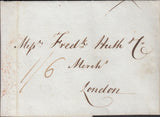 Messrs Fredk Huth & Co
1/6 Merchts
London